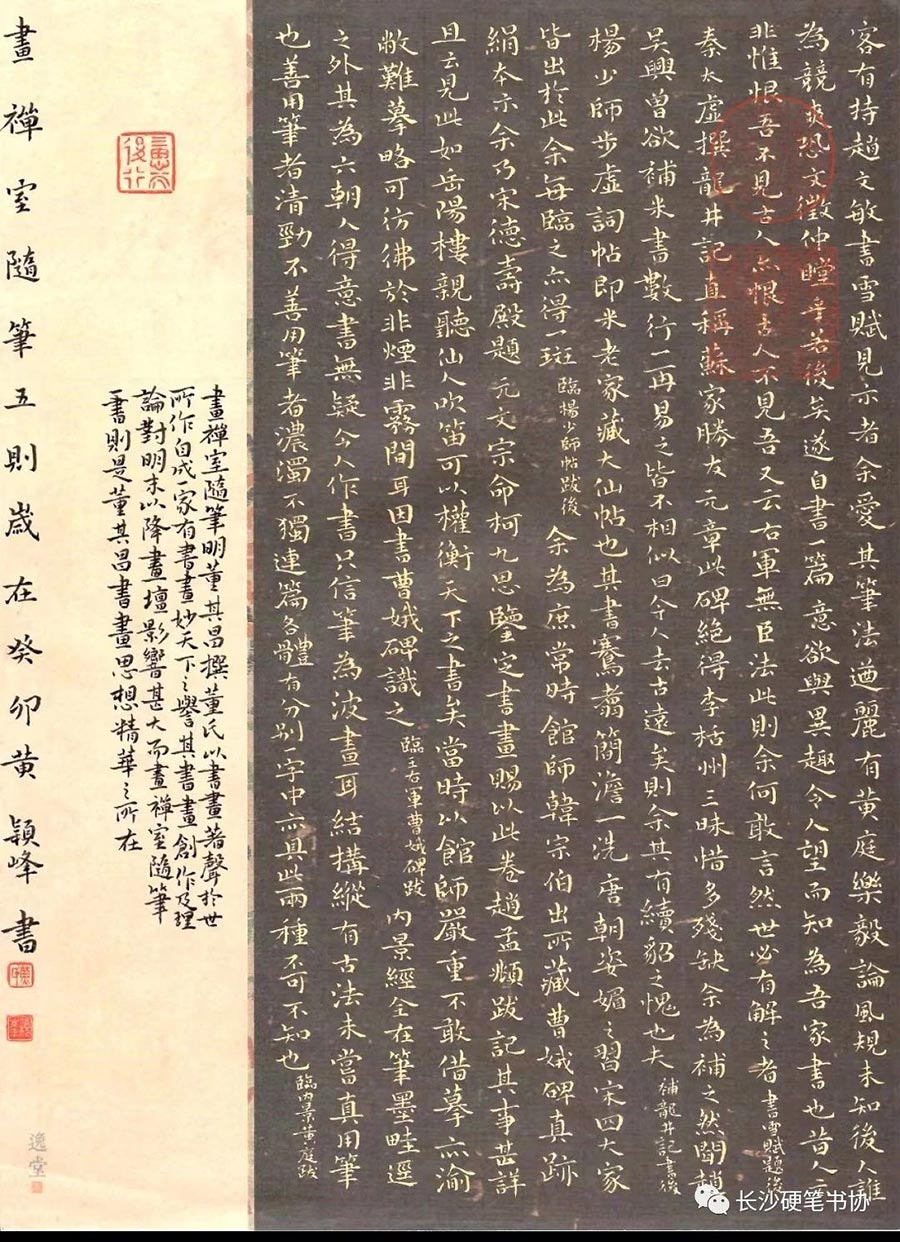 客有持趙文敏書雪賦見示者余愛其筆法遒麗有黃庭樂毅論風規未知後人誰
為競爽恐文徵仲瞠乎若後矣遂自書一篇意欲與異趣令人望而知為吾家書也昔人云
非惟恨吾不見古人亦恨古人不見吾又云右軍無臣法此則余何敢言然世必有解之者 書雪賦題後
秦太虛撰龍井記直稱蘇家勝友元章此碑絕得李括州三昧惜多殘缺余為補之然聞趙
吳興曾欲補米書數行一再易之皆不相似曰今人去古遠矣則余其有續貂之愧也夫 補龍井記書後
楊少師步虛詞帖即米老家藏大仙帖也其書騫翥簡澹一洗唐朝姿媚之習宋四大家
皆出於此余每臨之亦得一斑 臨楊少師帖跋後 余為庶常時館師韓宗伯出所藏曹娥碑真跡
絹本示余乃宋德壽殿題 元文宗命柯九思鑒定書畫賜以此卷趙孟頫跋記其事甚詳
且云見此如岳陽樓親聽仙人吹笛可以權衡天下之書矣當時以館師嚴重不敢借摹亦渝
敝難摹略可彷彿於非煙非霧間耳因書曹娥碑識之 臨王右軍曹娥碑跋 內景經全在筆墨畦逕
之外其為六朝人得意書無疑今人作書只信筆為波畫耳結構縱有古法未嘗真用筆
也善用筆者清勁不善用筆者濃濁不獨連篇各體有分別一字中亦具此兩種不可不知也 臨內景黃庭跋
畫禪室隨筆明董其昌撰董氏以書畫著聲於世
所作自成一家有書畫妙天下之譽其書畫創作及理
論對明末以降畫壇影響甚大而畫禪室隨筆
一書則是董其昌書畫思想精華之所在
畫禪室隨筆五則歲在癸卯黃穎峰書
逸堂
长沙硬笔书协